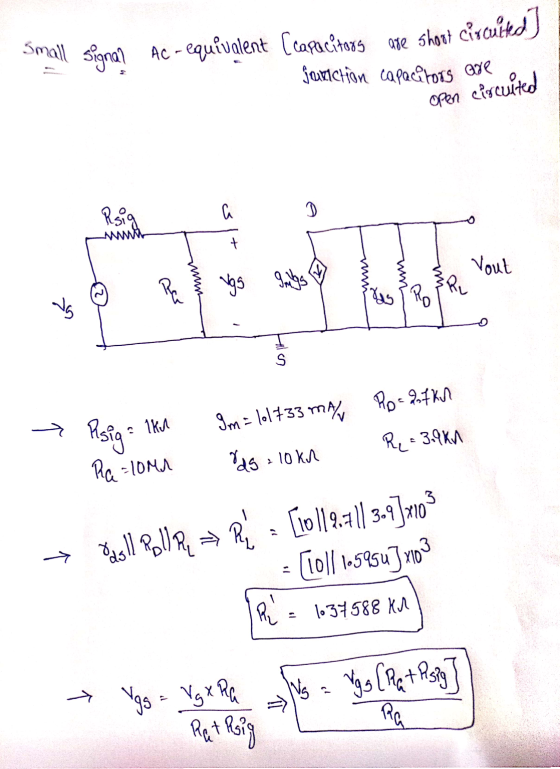 Small signal AC-equivalent [capacitors are short circuited]
junction capacitors are
open circuited
Rsig G D
+
Vs RG Vgs gmVgs rds RD RL Vout
-
S
→ Rsig = 1KΩ gm = 1.1733 mA/V RD = 2.7KΩ
RG = 10MΩ rds = 10KΩ RL = 3.9KΩ
→ rds||RD||RL ⇒ RL' = [10||2.7||3.9]x10³
= [10||1.5954]x10³
RL' = 1.37588 KΩ
→ Vgs = Vs x RG / RG + Rsig ⇒ Vs = Vgs[RG + Rsig] / RG